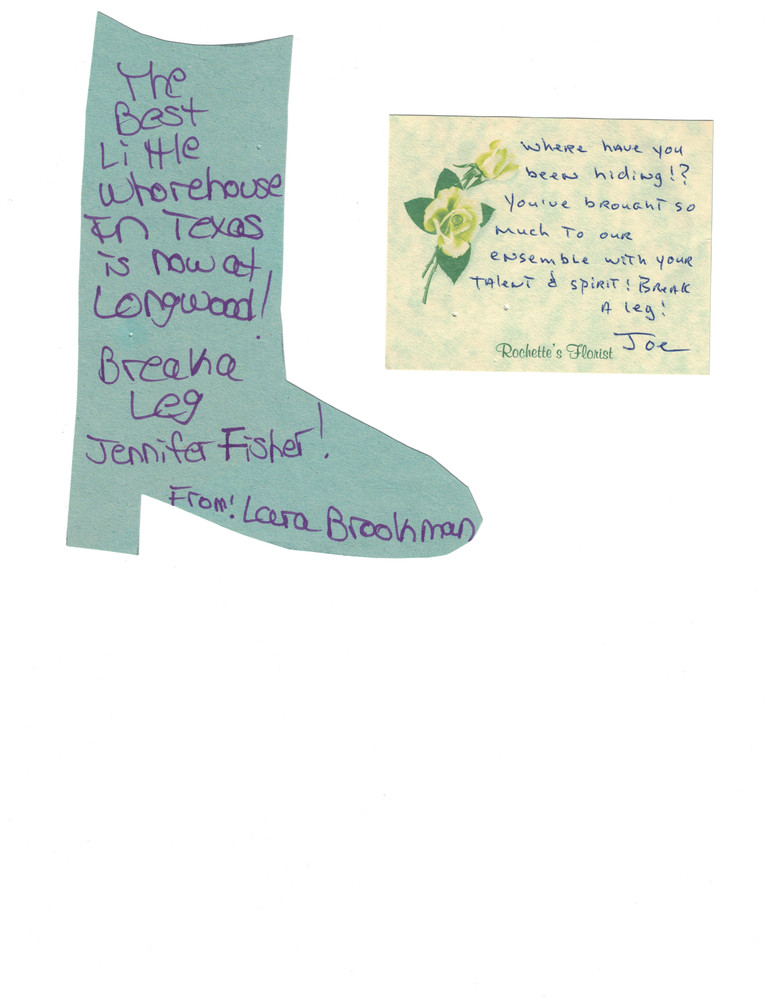 The
Best
Little
Whorehouse
In Texas
is now at
Longwood!
Break a
Leg
Jennifer Fisher!
From! Lara Brookman
Where have you
been hiding!?
You've brought so
much to our
ensemble with your
talent & spirit! Break
a leg!
Joe
Rochette's Florist